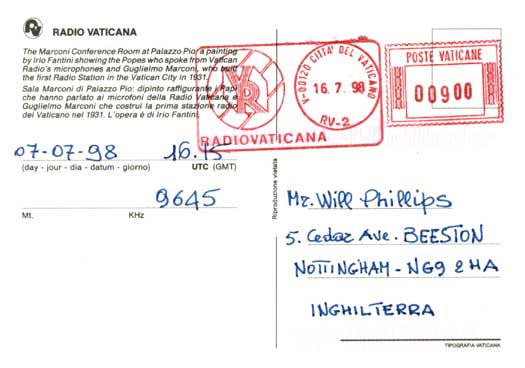 RADIO VATICANA
The Marconi Conference Room at Palazzo Pio: a painting
by Irio Fantini showing the Popes who spoke from Vatican
Radio's microphones and Guglielmo Marconi, who built
the first Radio Station in the Vatican City in 1931.
Sala Marconi di Palazzo Pio: dipinto raffigurante i Papi
che hanno parlato ai microfoni della Radio Vaticana e
Guglielmo Marconi che costruì la prima stazione radio
del Vaticano nel 1931. L'opera è di Irio Fantini.
RADIOVATICANA
V-00120 CITTA' DEL VATICANO
16.7.98
RV-2
POSTE VATICANE
00900
07-07-98 16.15
(day - jour - dia - datum - giorno) UTC (GMT)
9645
Mt. KHz
Riproduzione vietata
Mr. Will Phillips
5. Cedar Ave. BEESTON
NOTTINGHAM - NG9 2HA
INGHILTERRA
TIPOGRAFIA VATICANA